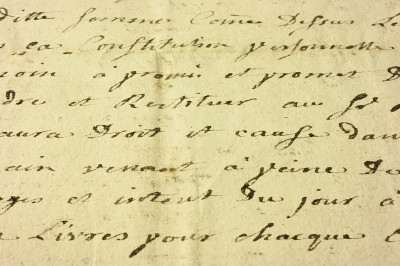 ditte somme Come Dessus Le
sa Constitution personnelle
a promis et promet D
dre et Restituer au Sr
aura Droit et cause dan
ain venant à peine De
et interet Du jour à
Livres pour chacque